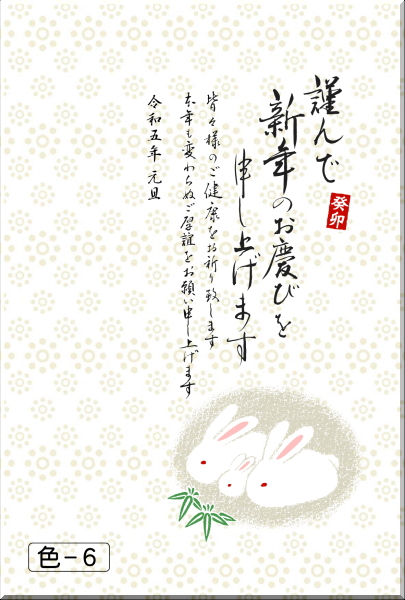 謹んで
新年のお慶びを
申し上げます
癸卯
皆々様のご健康をお祈り致します
本年も変わらぬご厚誼をお願い申し上げます
令和五年 元旦
色−6